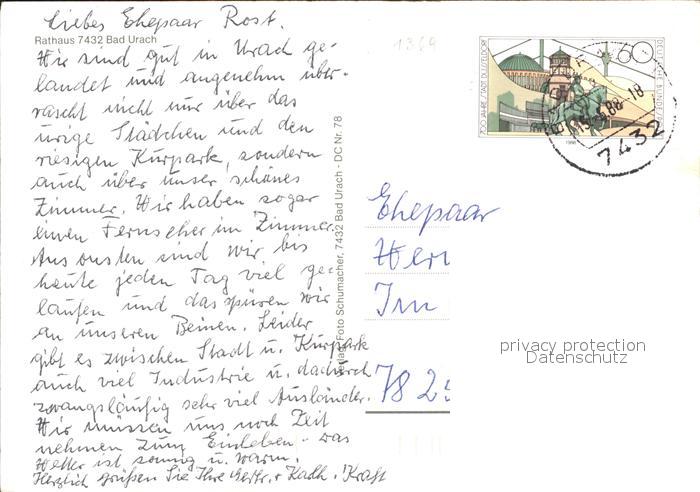 Liebes Ehepaar Rost.
Rathaus 7432 Bad Urach
Wir sind gut in Urach ge-
landet und angenehm über-
rascht nicht nur über das
urige Städchen und den
riesigen Kurpark, sondern
auch über unser schönes
Zimmer. Wir haben sogar
einen Fernseher im Zimmer.
Ansonsten sind wir bis
heute jeden Tag viel ge-
laufen und das spüren wir
an unseren Beinen. Leider
gibt es zwischen Stadt u. Kurpark
auch viel Industrie u. dadurch
zwangsläufig sehr viel Ausländer.
Wir müssen uns noch Zeit
nehmen zum Einleben - das
Wetter ist sonnig u. warm.
Herzlich grüßen Sie Ihre Kath. Kraft
Verlag: Foto Schumacher, 7432 Bad Urach - DC Nr. 78
1369
700 JAHRE STADT DÜSSELDORF
DEUTSCHE BUNDESPOST
60
1988
88-18
7432
Ehepaar
Im
78
privacy protection
Datenschutz